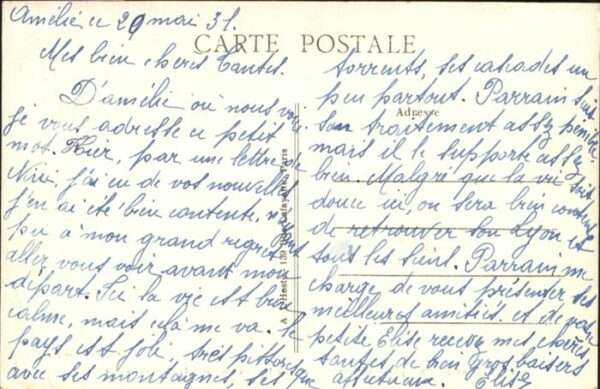 Amélie ce 20 mai 31.
CARTE POSTALE
Mes bien cheres Tantes.
D'amélie où nous
je vous adresse ce petit
mot. Hier, par une lettre de
Nini, j'ai eu de vos nouvelles
j'en ai été bien contente, n'
pu à mon grand regret
allez vous voir avant mon
départ. Ici la vie est bien
calme, mais celà me va. Le
pays est joli, très pittoresque
avec ses montagnes, ses
torrents, ses cascades un
peu partout. Parrain suit
Adresse
son traitement assez pénible
mais il le supporte assez
bien. Malgré que la vie soit
douce ici, on sera bien content
de retrouver son Lyon et
tous les siens. Parrain me
charge de vous présenter ses
meilleures amitiés. et de votre
petite Elise recevez mes chères
tantes, de bien gros baisers
affectueux. Elise